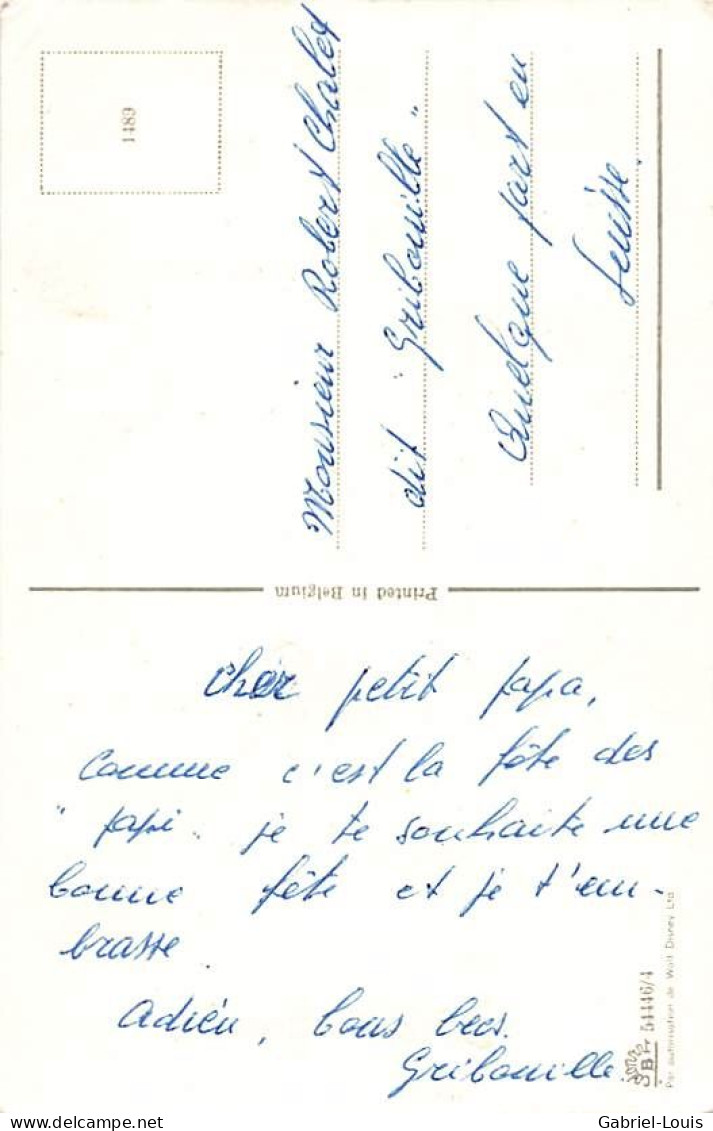 1489
Monsieur Robert Chalet
dit "Gribouille"
Quelque part en
Suisse.
Printed in Belgium
Cher petit papa,
Comme c'est la fête des
"papi" je te souhaite une
bonne fête et je t'em-
brasse.
Adieu, bons becs.
Gribouille.
SBR 54446/4
Par autorisation de Walt Disney Ltd
Gabriel-Louis